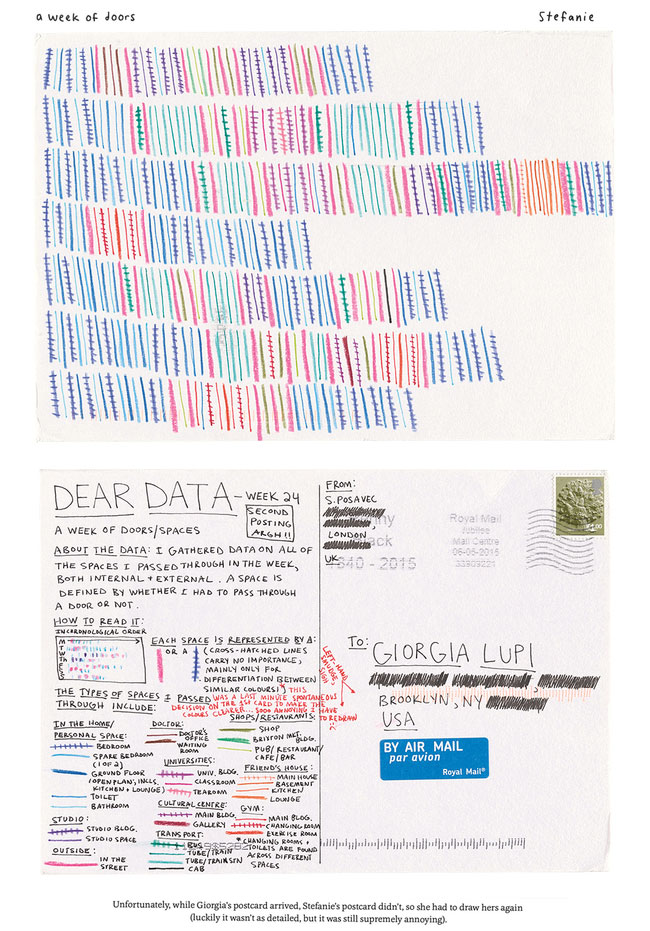 a week of doors
Stefanie
DEAR DATA - WEEK 24
SECOND
POSTING
ARGH!!
A WEEK OF DOORS/SPACES
ABOUT THE DATA: I GATHERED DATA ON ALL OF
THE SPACES I PASSED THROUGH IN THE WEEK,
BOTH INTERNAL + EXTERNAL. A SPACE IS
DEFINED BY WHETHER I HAD TO PASS THROUGH
A DOOR OR NOT.
HOW TO READ IT:
IN CHRONOLOGICAL ORDER
M
T
W
Th
F
S
S
EACH SPACE IS REPRESENTED BY A:
OR A
(CROSS-HATCHED LINES
CARRY NO IMPORTANCE,
MAINLY ONLY FOR
DIFFERENTIATION BETWEEN
SIMILAR COLOURS!)
THIS
WAS A LAST MINUTE SPONTANEOUS
DECISION ON THE 1ST CARD TO MAKE THE
COLOURS CLEARER... SOOO ANNOYING I HAVE
TO REDRAW
LEFT-HAND
SMUDGE
SIGH
THE TYPES OF SPACES I PASSED
THROUGH INCLUDE:
IN THE HOME/
PERSONAL SPACE:
BEDROOM
SPARE BEDROOM
(1 OF 2)
GROUND FLOOR
(OPEN PLAN, INCLS.
KITCHEN + LOUNGE)
TOILET
BATHROOM
STUDIO:
STUDIO BLDG.
STUDIO SPACE
OUTSIDE:
IN THE
STREET
DOCTOR:
DOCTOR'S
OFFICE
WAITING
ROOM
UNIVERSITIES:
UNIV. BLDG.
CLASSROOM
TEAROOM
CULTURAL CENTRE:
MAIN BLDG.
GALLERY
TRANSPORT:
BUS
TUBE/TRAIN
TUBE/TRAIN STN
CAB
SHOPS/RESTAURANTS:
SHOP
BRIXTON MET. BLDG.
PUB/RESTAURANT/
CAFE/BAR
FRIEND'S HOUSE:
MAIN HOUSE
BASEMENT
KITCHEN
LOUNGE
GYM:
MAIN BLDG.
CHANGING ROOM
EXERCISE ROOM
*CHANGING ROOMS +
TOILETS ARE FOUND
ACROSS DIFFERENT
SPACES
FROM:
S. POSAVEC
LONDON
UK
1840 - 2015
Royal Mail
Jubilee
Mail Centre
06-05-2015
TO: GIORGIA LUPI
BROOKLYN, NY
USA
BY AIR MAIL
par avion
Royal Mail®
Unfortunately, while Giorgia's postcard arrived, Stefanie's postcard didn't, so she had to draw hers again
(luckily it wasn't as detailed, but it was still supremely annoying).